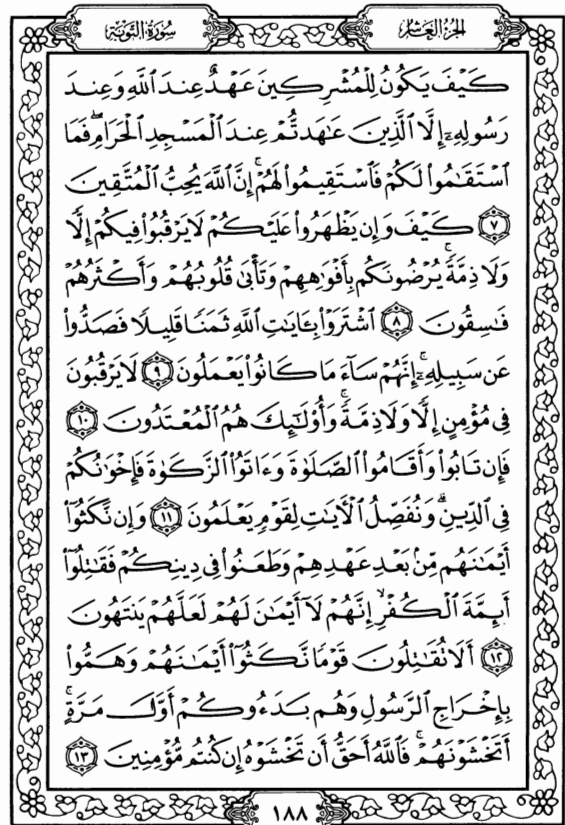 سُورَةُ التَّوْبَةِ
الجُزْءُ العَاشِرُ
كَيْفَ يَكُونُ لِلْمُشْرِكِينَ عَهْدٌ عِندَ ٱللَّهِ وَعِندَ
رَسُولِهِۦٓ إِلَّا ٱلَّذِينَ عَٰهَدتُّمْ عِندَ ٱلْمَسْجِدِ ٱلْحَرَامِ ۖ فَمَا
ٱسْتَقَٰمُوا۟ لَكُمْ فَٱسْتَقِيمُوا۟ لَهُمْ ۚ إِنَّ ٱللَّهَ يُحِبُّ ٱلْمُتَّقِينَ
﴿٧﴾ كَيْفَ وَإِن يَظْهَرُوا۟ عَلَيْكُمْ لَا يَرْقُبُوا۟ فِيكُمْ إِلًّا
وَلَا ذِمَّةً ۚ يُرْضُونَكُم بِأَفْوَٰهِهِمْ وَتَأْبَىٰ قُلُوبُهُمْ وَأَكْثَرُهُمْ
فَٰسِقُونَ ﴿٨﴾ ٱشْتَرَوْا۟ بِـَٔايَٰتِ ٱللَّهِ ثَمَنًا قَلِيلًا فَصَدُّوا۟
عَن سَبِيلِهِۦٓ ۚ إِنَّهُمْ سَآءَ مَا كَانُوا۟ يَعْمَلُونَ ﴿٩﴾ لَا يَرْقُبُونَ
فِى مُؤْمِنٍ إِلًّا وَلَا ذِمَّةً ۚ وَأُو۟لَٰٓئِكَ هُمُ ٱلْمُعْتَدُونَ ﴿١٠﴾
فَإِن تَابُوا۟ وَأَقَامُوا۟ ٱلصَّلَوٰةَ وَءَاتَوُا۟ ٱلزَّكَوٰةَ فَإِخْوَٰنُكُمْ
فِى ٱلدِّينِ ۗ وَنُفَصِّلُ ٱلْءَايَٰتِ لِقَوْمٍ يَعْلَمُونَ ﴿١١﴾ وَإِن نَّكَثُوٓا۟
أَيْمَٰنَهُم مِّنۢ بَعْدِ عَهْدِهِمْ وَطَعَنُوا۟ فِى دِينِكُمْ فَقَٰتِلُوٓا۟
أَئِمَّةَ ٱلْكُفْرِ ۙ إِنَّهُمْ لَآ أَيْمَٰنَ لَهُمْ لَعَلَّهُمْ يَنتَهُونَ
﴿١٢﴾ أَلَا تُقَٰتِلُونَ قَوْمًا نَّكَثُوٓا۟ أَيْمَٰنَهُمْ وَهَمُّوا۟
بِإِخْرَاجِ ٱلرَّسُولِ وَهُم بَدَءُوكُمْ أَوَّلَ مَرَّةٍ ۚ
أَتَخْشَوْنَهُمْ ۚ فَٱللَّهُ أَحَقُّ أَن تَخْشَوْهُ إِن كُنتُم مُّؤْمِنِينَ ﴿١٣﴾
١٨٨